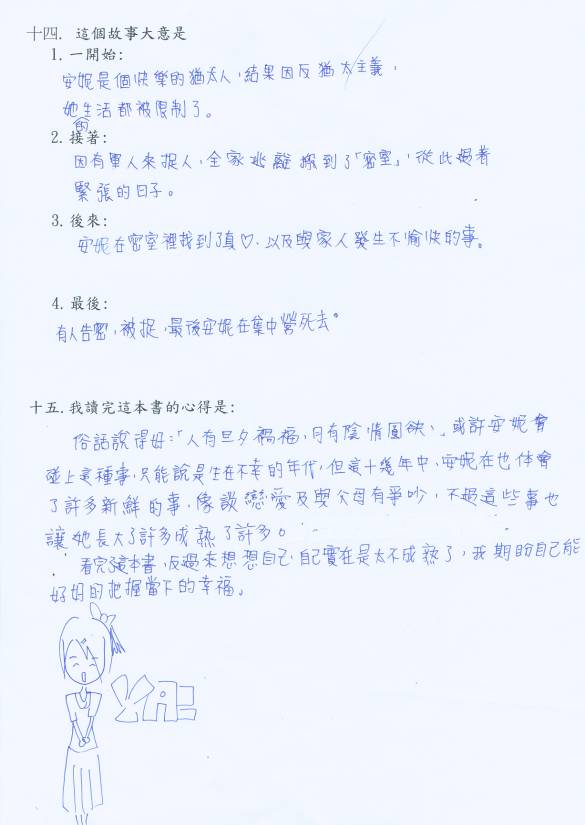 十四. 這個故事大意是
1. 一開始:
安妮是個快樂的猶太人,結果因反猶太主義,
她的生活都被限制了。
2. 接著:
因有軍人來捉人,全家逃離搬到了「密室」,從此過着
緊張的日子。
3. 後來:
安妮在密室裡找到了真♡,以及與家人發生不愉快的事。
4. 最後:
有人告密,被捉,最後安妮在集中營死去。
十五. 我讀完這本書的心得是:
俗話說得好:「人有旦夕禍福,月有陰情圓缺、」或許安妮會
碰上這種事,只能說是生在不幸的年代,但這十幾年中,安妮在也体會
了許多新鮮的事,像談戀愛及與父母有爭吵,不過這些事也
讓她長大了許多成熟了許多。
看完了這本書,反過來想想自己,自己實在是太不成熟了,我期盼自己能
好好的把握當下的幸福。
YA!!